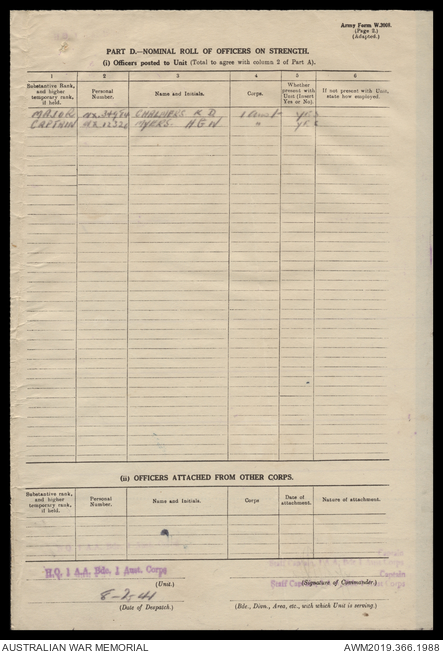 Army Form W.3008.
(Page 2.)
(Adapted.)
PART D.—NOMINAL ROLL OF OFFICERS ON STRENGTH.
(i) Officers posted to Unit (Total to agree with column 2 of Part A).
1 2 3 4 5 6
Substantive Rank, and higher temporary rank, if held.
Personal Number.
Name and Initials.
Corps.
Whether present with Unit (Insert Yes or No).
If not present with Unit, state how employed
MAJOR CHALMERS R D
CAPTAIN MYERS H G W "
(ii) OFFICERS ATTACHED FROM OTHER CORPS.
Substantive rank, and higher temporary rank, if held.
Personal Number.
Name and Initials.
Corps
Date of attachment.
Nature of attachment.
H.Q. 1 A.A. Bde. 1 Aust. Corps
Captain
(Unit.)
Staff Captain
(Signature of Commander.)
(Date of Despatch.)
(Bde., Divn., Area, etc., with which Unit is serving.)
AUSTRALIAN WAR MEMORIAL
AWM2019.366.1988